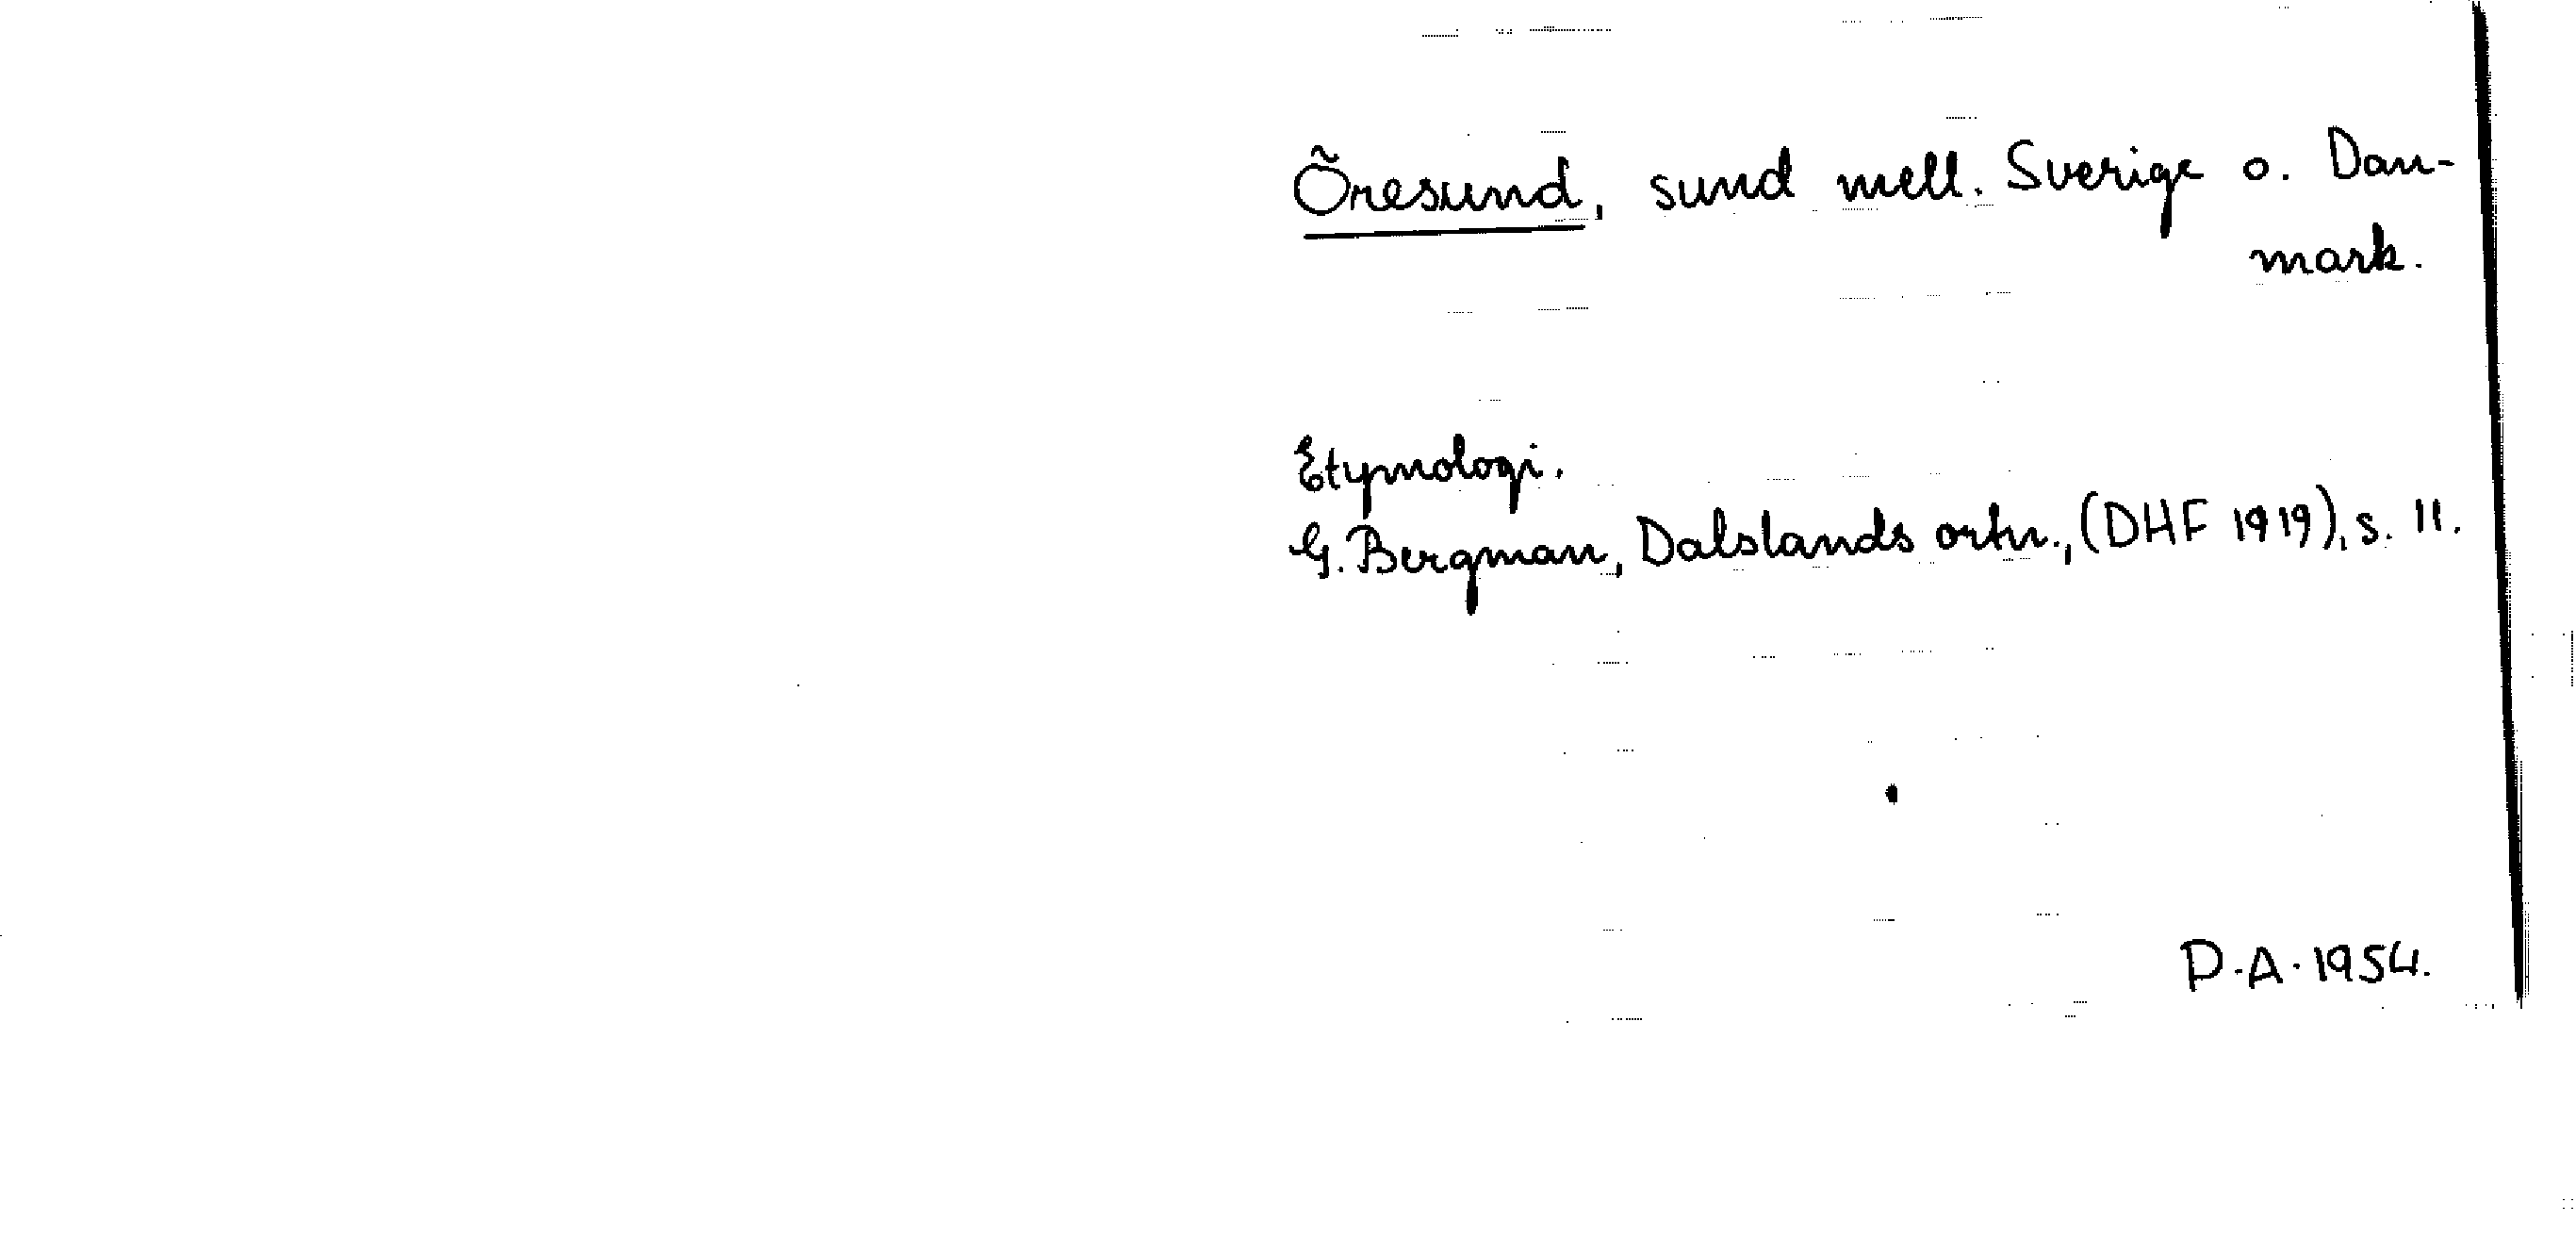 Öresund, sund mell. Sverige o. Dan-
mark.
Etymologi.
G. Bergman, Dalslands ortn., (DHF 1919), s. 11.
P.A. 1954.